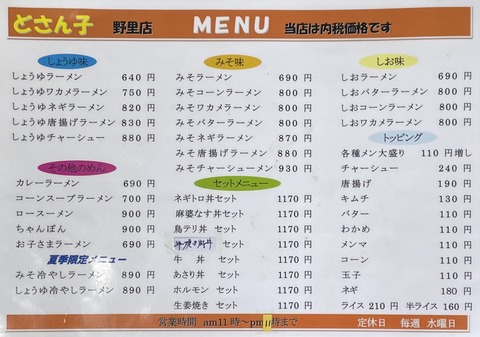 どさん子 野里店 MENU 当店は内税価格です
しょうゆ味
しょうゆラーメン 640 円
しょうゆワカメラーメン 750 円
しょうゆネギラーメン 820 円
しょうゆ唐揚げラーメン 830 円
しょうゆチャーシュー 880 円
その他のめん
カレーラーメン 690 円
コーンスープラーメン 700 円
ロースーメン 900 円
ちゃんぽん 900 円
お子さまラーメン 690 円
夏季限定メニュー
みそ冷やしラーメン 890 円
しょうゆ冷やしラーメン 890 円
みそ味
みそラーメン 690 円
みそコーンラーメン 800 円
みそワカメラーメン 800 円
みそバターラーメン 800 円
みそネギラーメン 870 円
みそ唐揚げラーメン 880 円
みそチャーシューメン 930 円
セットメニュー
ネギトロ丼セット 1170 円
麻婆なす丼セット 1170 円
鳥テリ丼 セット 1170 円
セット 1170 円
牛 丼 セット 1170 円
あさり丼 セット 1170 円
ホルモン セット 1170 円
生姜焼き セット 1170 円
しお味
しおラーメン 690 円
しおバターラーメン 800 円
しおコーンラーメン 800 円
しおワカメラーメン 800 円
トッピング
各種メン大盛り 110 円増し
チャーシュー 240 円
唐揚げ 190 円
キムチ 130 円
バター 110 円
わかめ 110 円
メンマ 110 円
コーン 110 円
玉子 110 円
ネギ 180 円
ライス 210 円 半ライス 160 円
営業時間 am11時～pm時まで 定休日 毎週 水曜日